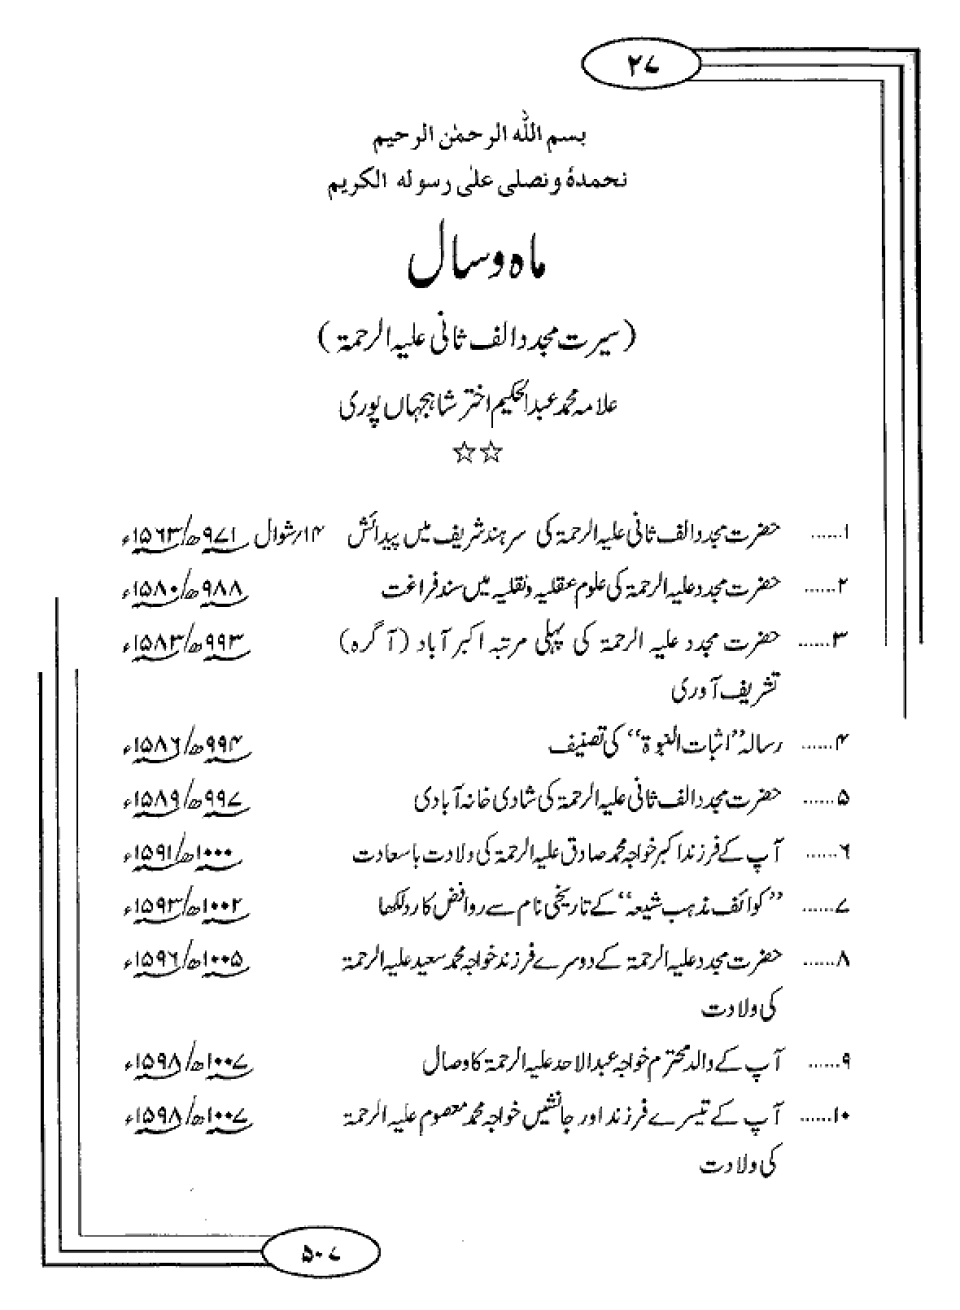 ۲۷
بسم اللّٰہ الرحمٰن الرحیم
نحمدہٗ ونصلی علیٰ رسولہ الکریم
ماہ وسال
(سیرت مجدد الف ثانی علیہ الرحمۃ)
علامہ محمد عبدالحکیم اختر شاہجہاں پوری
☆☆
۱...... حضرت مجدد الف ثانی علیہ الرحمۃ کی سرہند شریف میں پیدائش ۱۴/شوال ۹۷۱ھ/۱۵۶۳ء
۲...... حضرت مجدد علیہ الرحمۃ کی علوم عقلیہ ونقلیہ میں سند فراغت ۹۸۸ھ/۱۵۸۰ء
۳...... حضرت مجدد علیہ الرحمۃ کی پہلی مرتبہ اکبر آباد (آگرہ) ۹۹۳ھ/۱۵۸۳ء
تشریف آوری
۴...... رسالہ ’’اثبات النبوۃ‘‘ کی تصنیف ۹۹۴ھ/۱۵۸۶ء
۵...... حضرت مجدد الف ثانی علیہ الرحمۃ کی شادی خانہ آبادی ۹۹۷ھ/۱۵۸۹ء
۶...... آپ کے فرزند اکبر خواجہ محمد صادق علیہ الرحمۃ کی ولادت باسعادت ۱۰۰۰ھ/۱۵۹۱ء
۷...... ’’کوائف مذہب شیعہ‘‘ کے تاریخی نام سے روافض کا رد لکھا ۱۰۰۲ھ/۱۵۹۳ء
۸...... حضرت مجدد علیہ الرحمۃ کے دوسرے فرزند خواجہ محمد سعید علیہ الرحمۃ ۱۰۰۵ھ/۱۵۹۶ء
کی ولادت
۹...... آپ کے والد محترم خواجہ عبدالاحد علیہ الرحمۃ کا وصال ۱۰۰۷ھ/۱۵۹۸ء
۱۰...... آپ کے تیسرے فرزند اور جانشیں خواجہ محمد معصوم علیہ الرحمۃ ۱۰۰۷ھ/۱۵۹۸ء
کی ولادت
۵۰۷